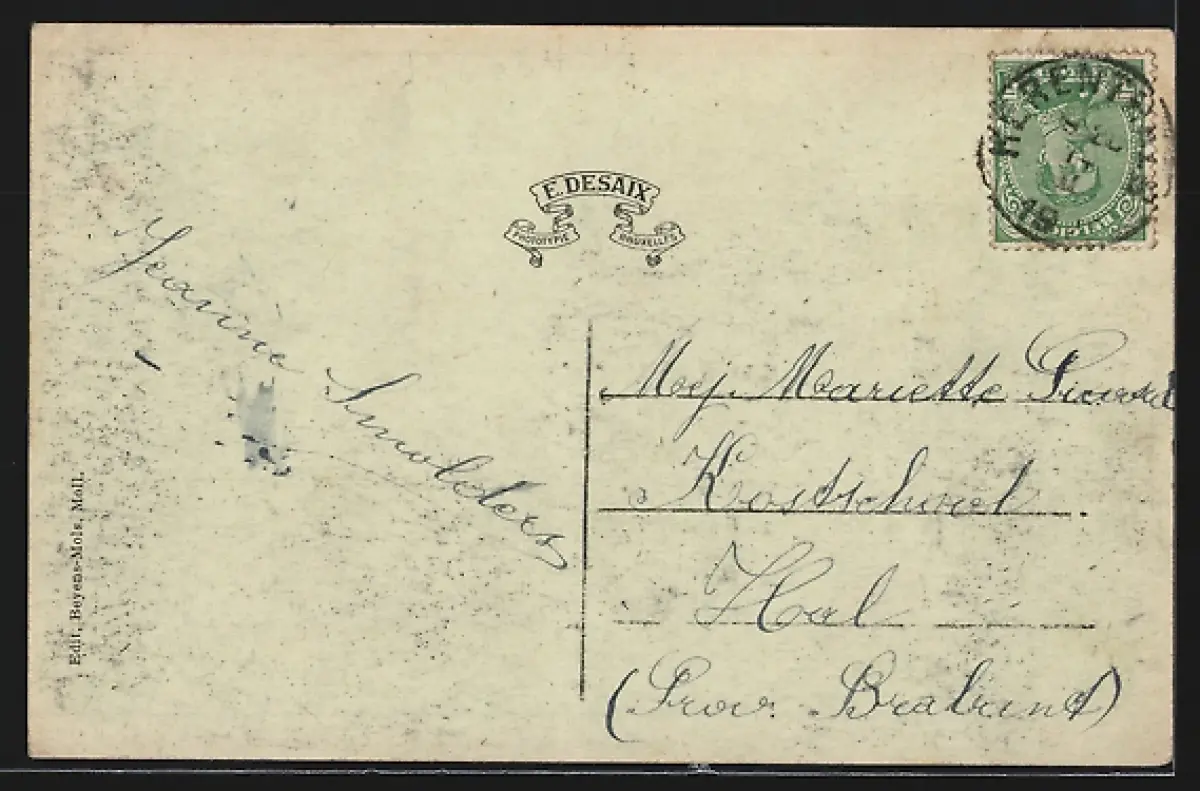 E. DESAIX
PHOTOTYPIE BRUXELLES
HERENTHALS
Jeanne Smolders
Mej. Mariette
Kostschool.
Hal
(Prov. Brabant)
Edit. Beyens-Mols, Moll.